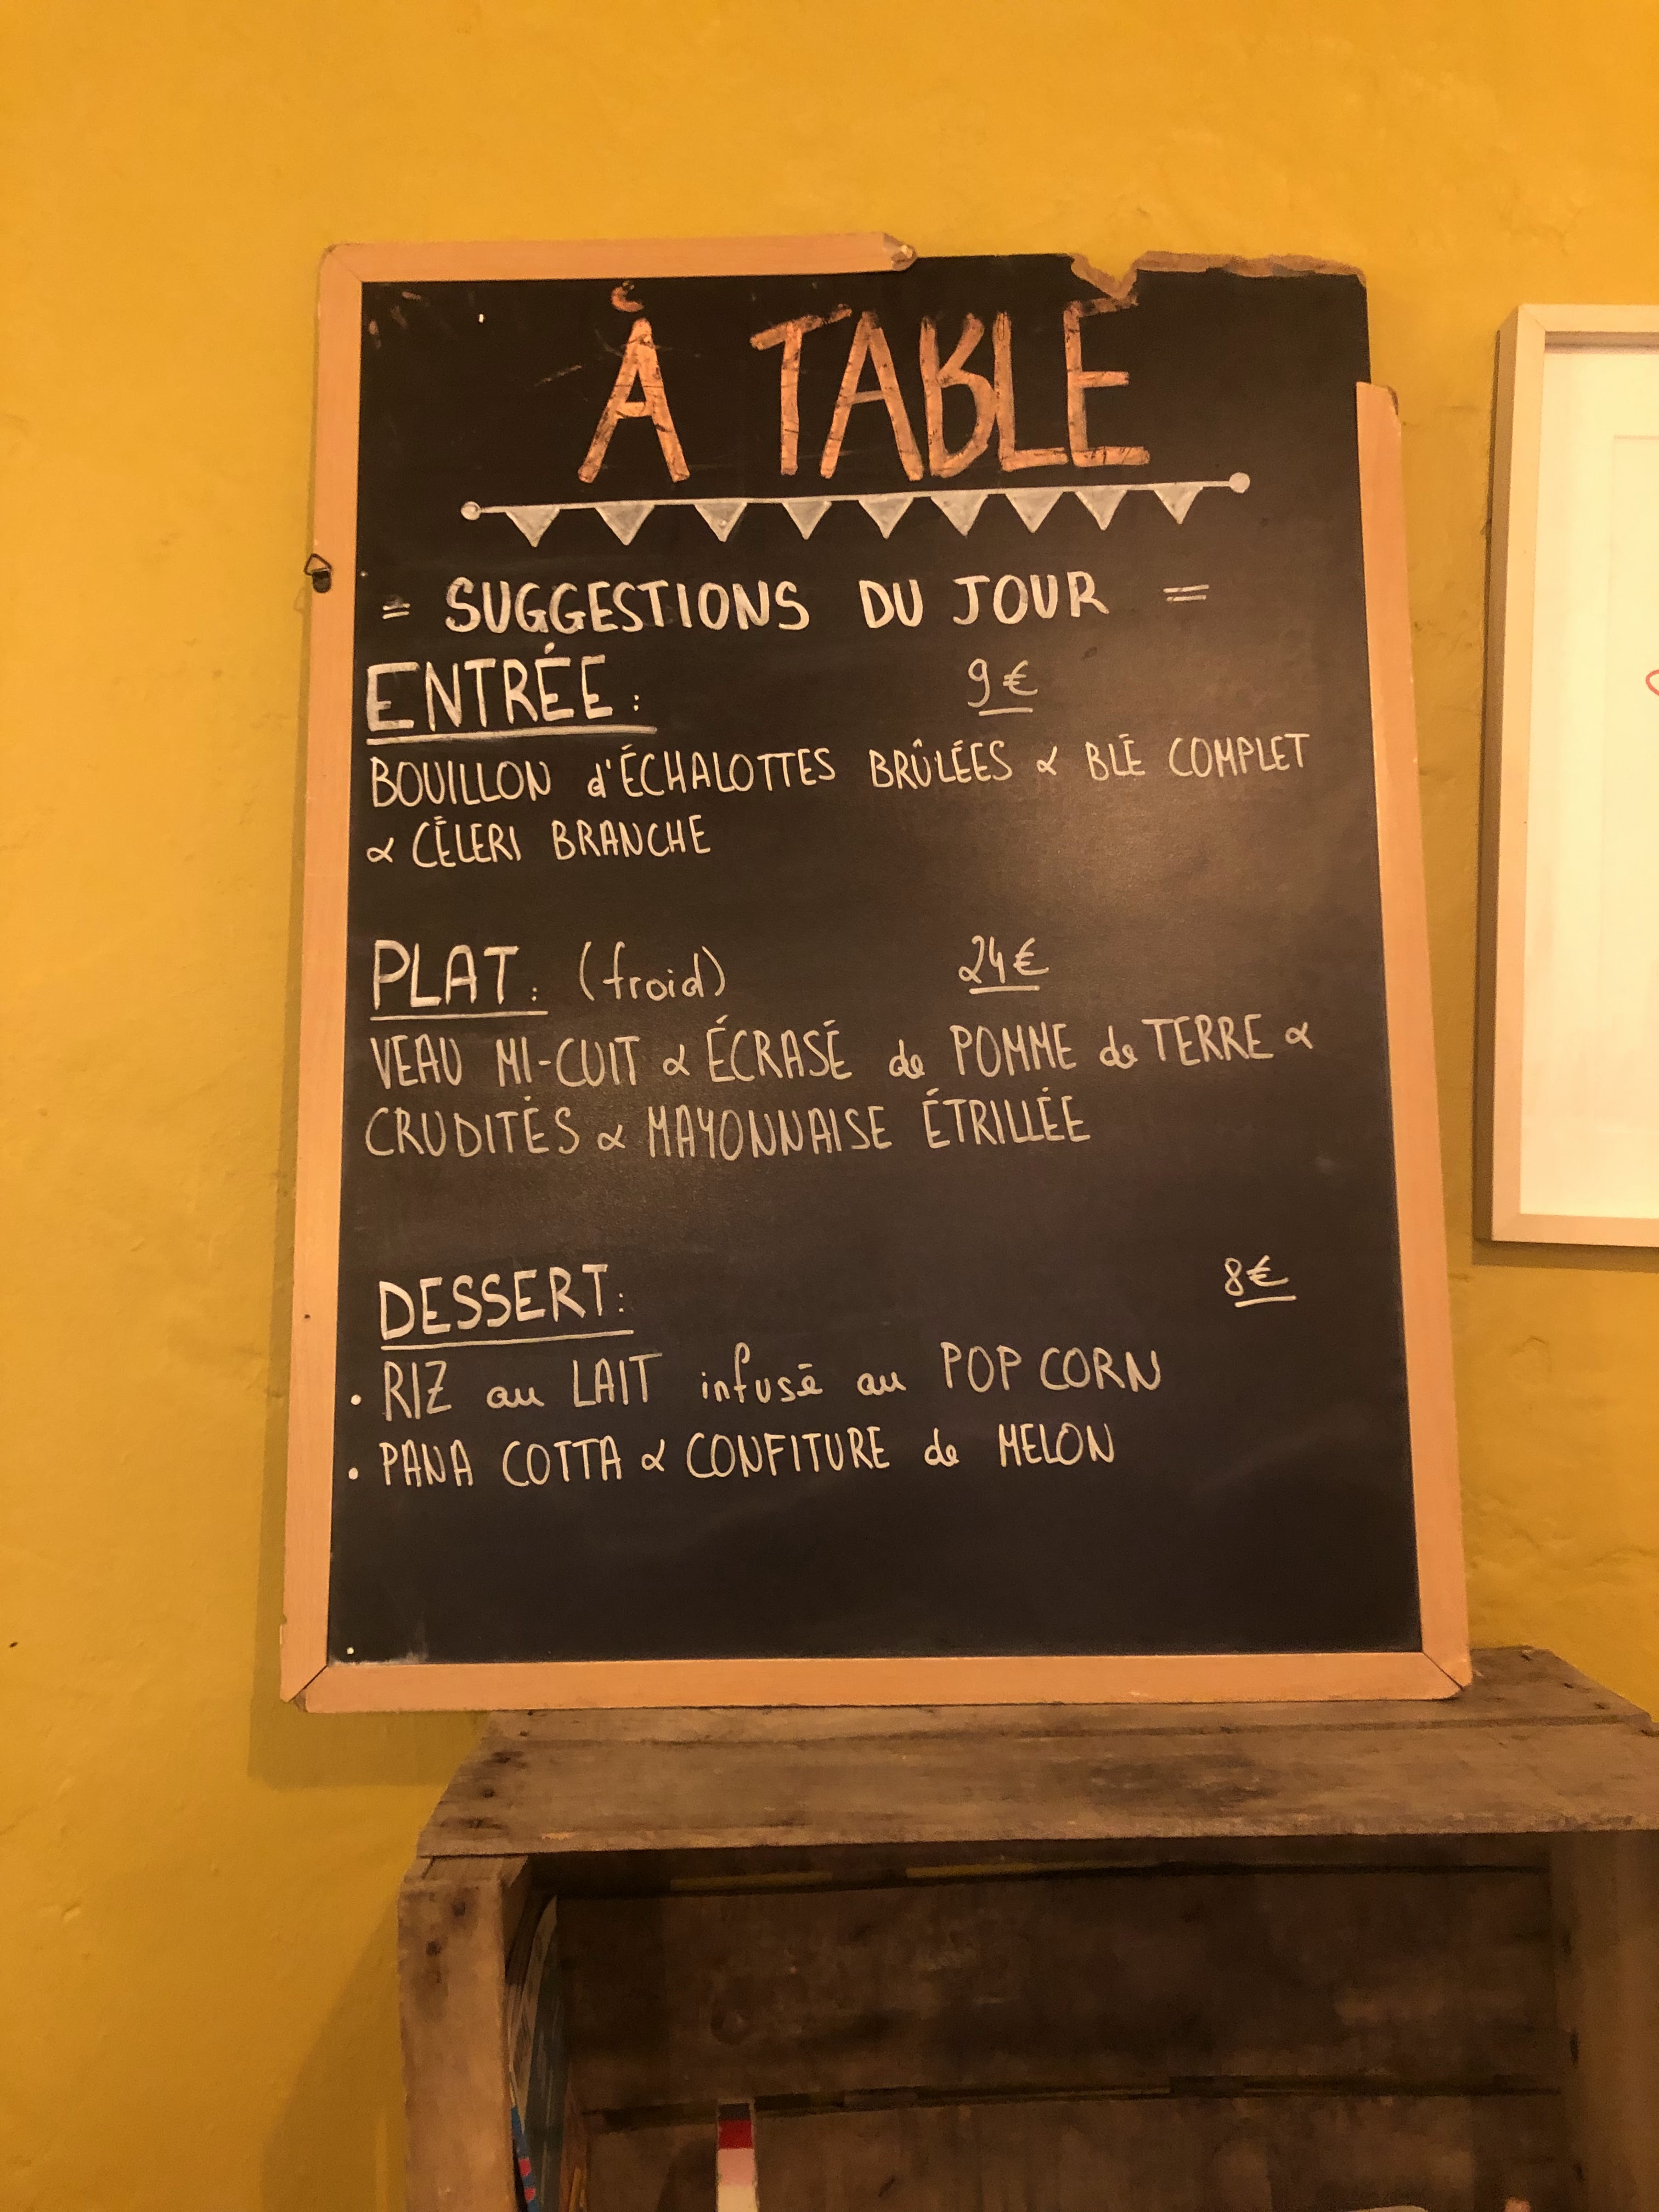 À TABLE
= SUGGESTIONS DU JOUR =
ENTRÉE: 9€
BOUILLON d'ÉCHALOTTES BRÛLÉES & BLÉ COMPLET
& CÉLERI BRANCHE
PLAT: (froid) 24€
VEAU MI-CUIT & ÉCRASÉ de POMME de TERRE &
CRUDITÉS & MAYONNAISE ÉTRILLÉE
DESSERT: 8€
• RIZ au LAIT infusé au POP CORN
• PANA COTTA & CONFITURE de MELON